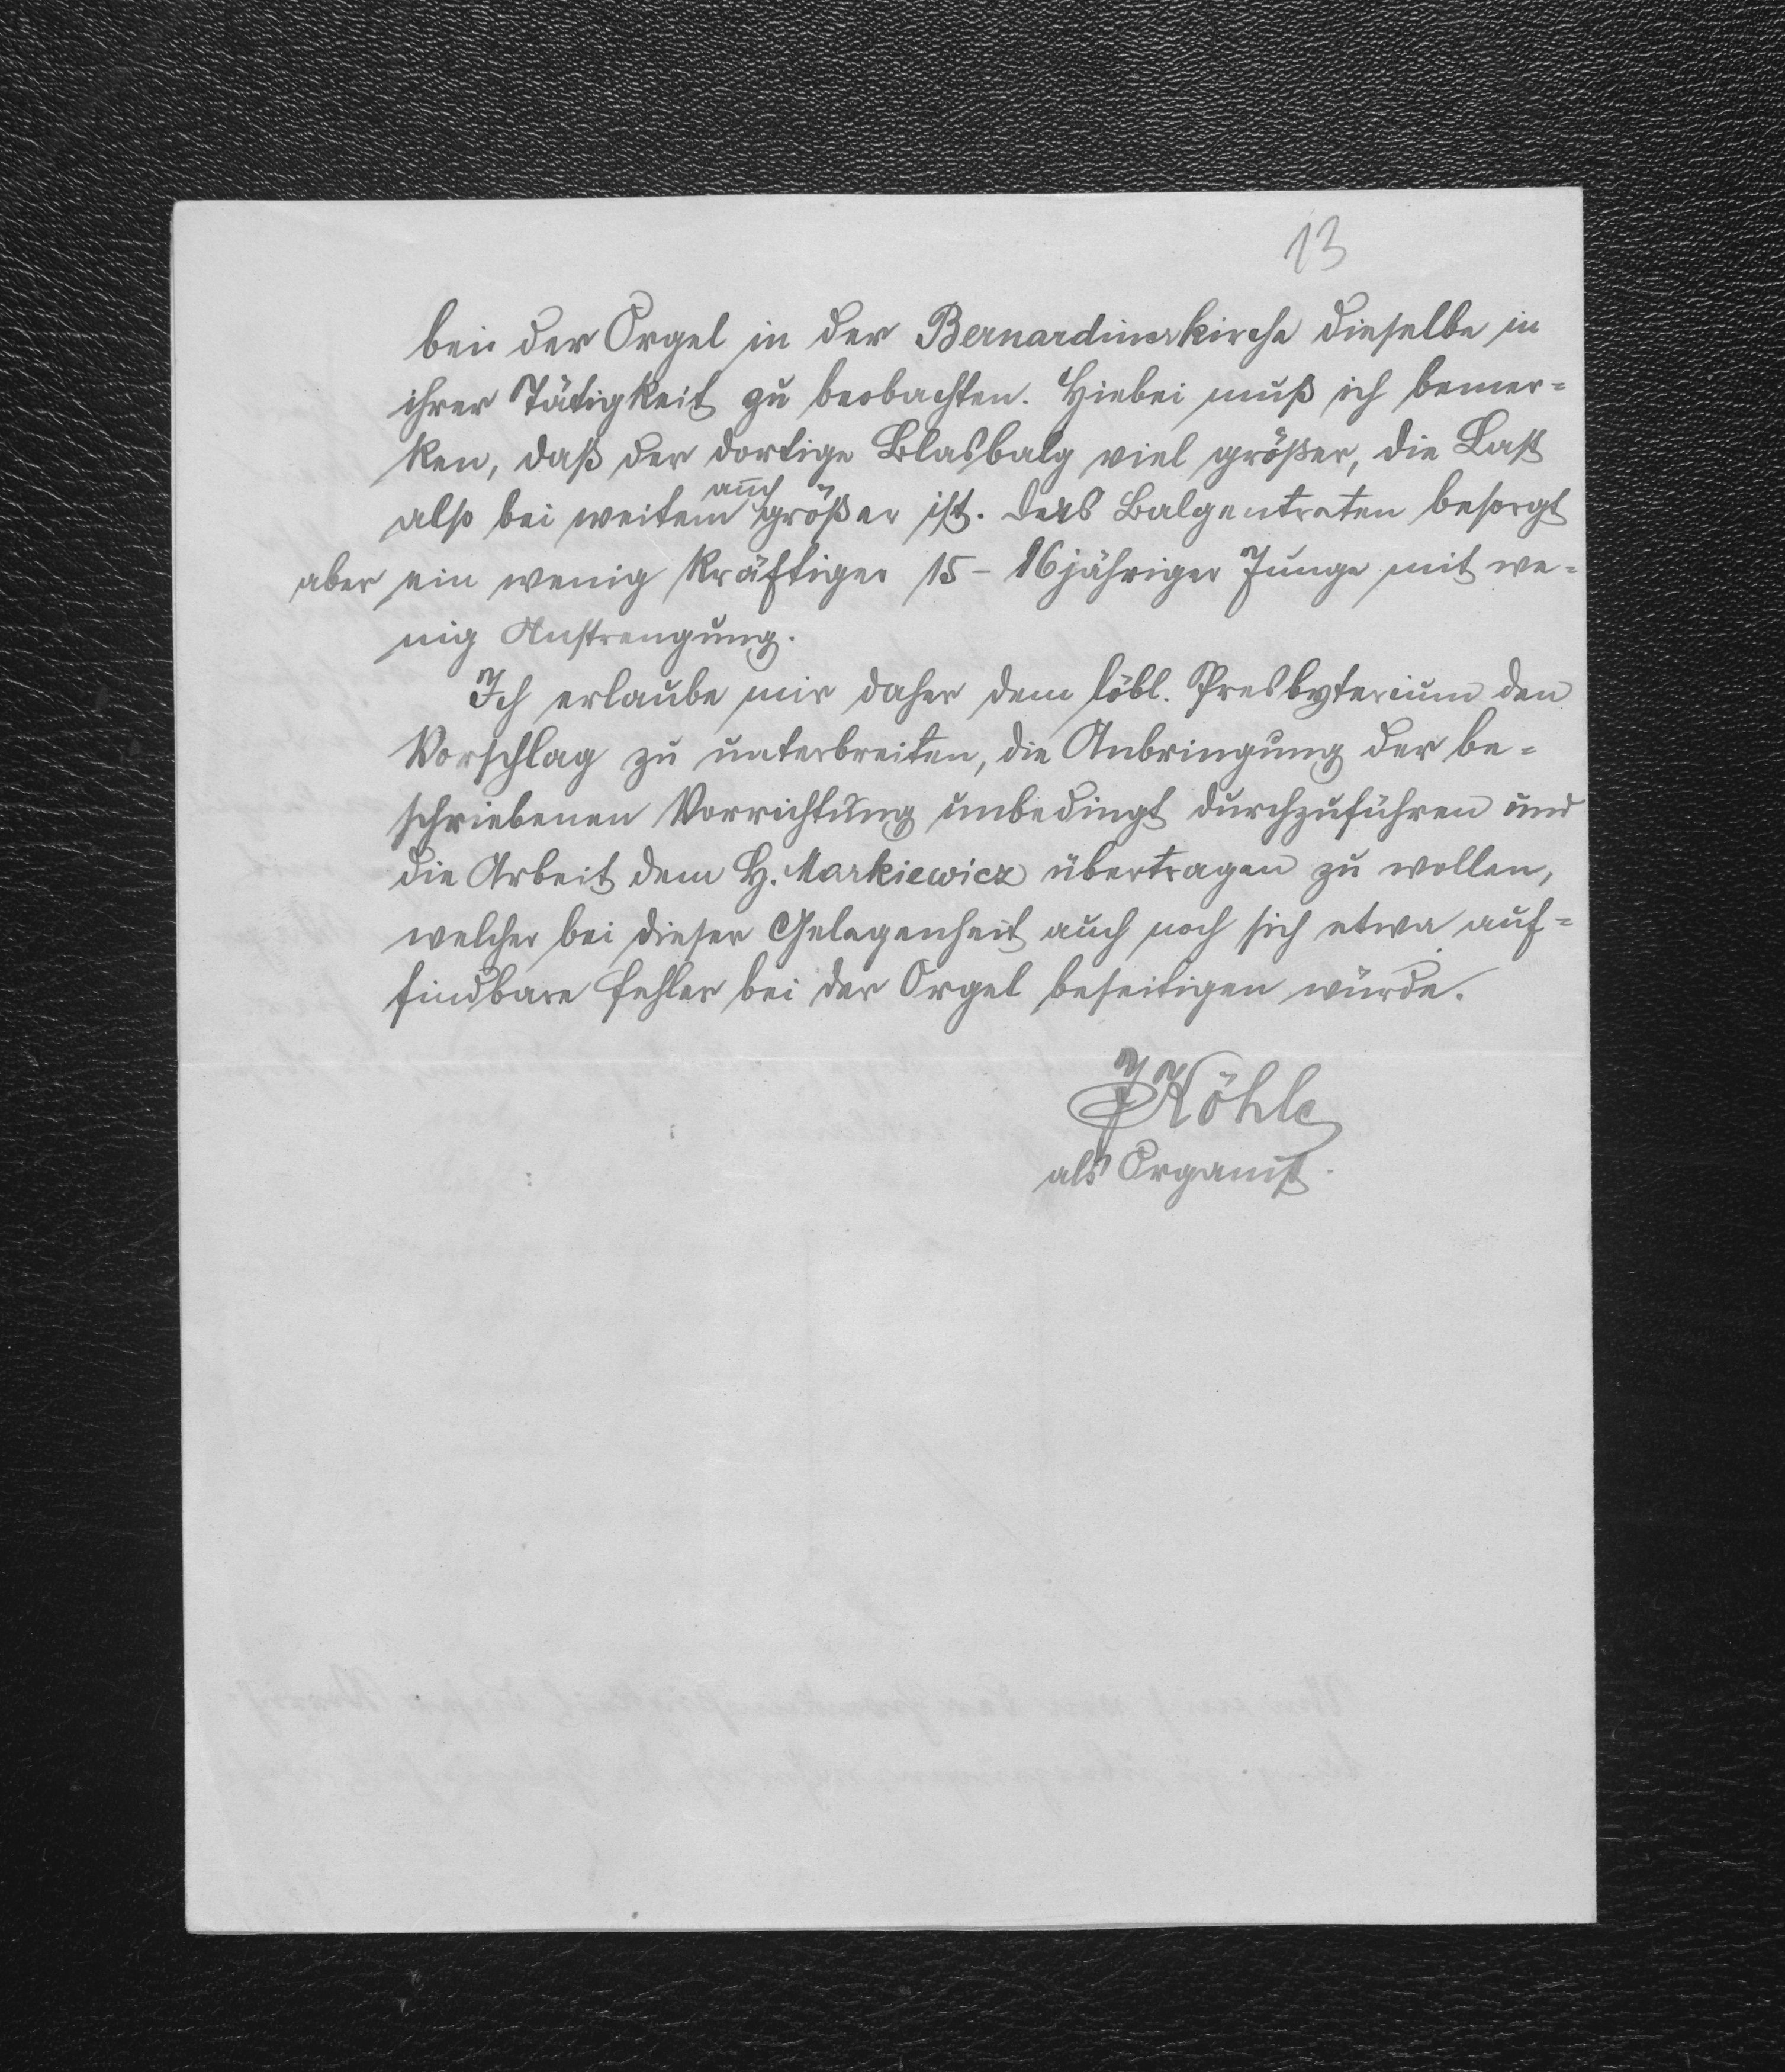 13
bei der Orgel in der Bernardinerkirche dieselbe in
ihrer Tätigkeit zu beobachten. Hiebei muß ich bemer-
ken, daß der dortige Blasbalg viel größer, die Last
also bei weitem auch größer ist. Das Balgentreten besorgt
aber ein wenig kräftiger 15-16jähriger Junge mit we-
nig Anstrengung.
Ich erlaube mir daher dem löbl. Presbyterium den
Vorschlag zu unterbreiten, die Anbringung der be-
schriebenen Vorrichtung unbedingt durchzuführen und
die Arbeit dem H. Markiewicz übertragen zu wollen,
welcher bei dieser Gelegenheit auch noch sich etwa auf-
findbare Fehler bei der Orgel beseitigen würde.
JKöhle
als Organist.